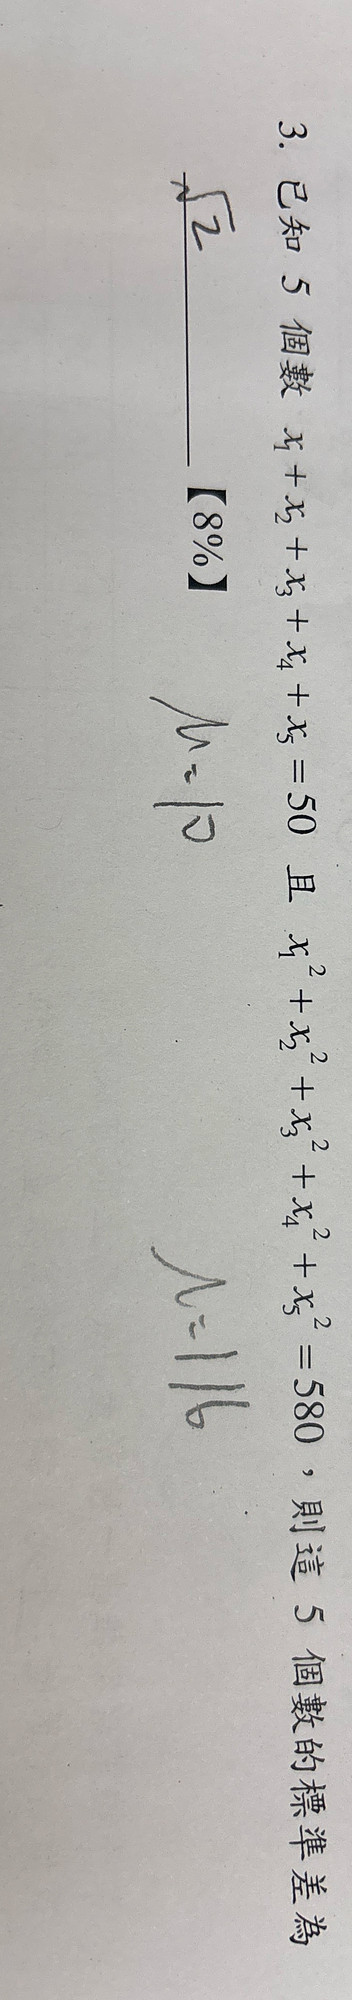 3. 已知 5 個數 x₁ + x₂ + x₃ + x₄ + x₅ = 50 且 x₁² + x₂² + x₃² + x₄² + x₅² = 580，則這 5 個數的標準差為
√2 【8%】
μ = 10 μ = 116